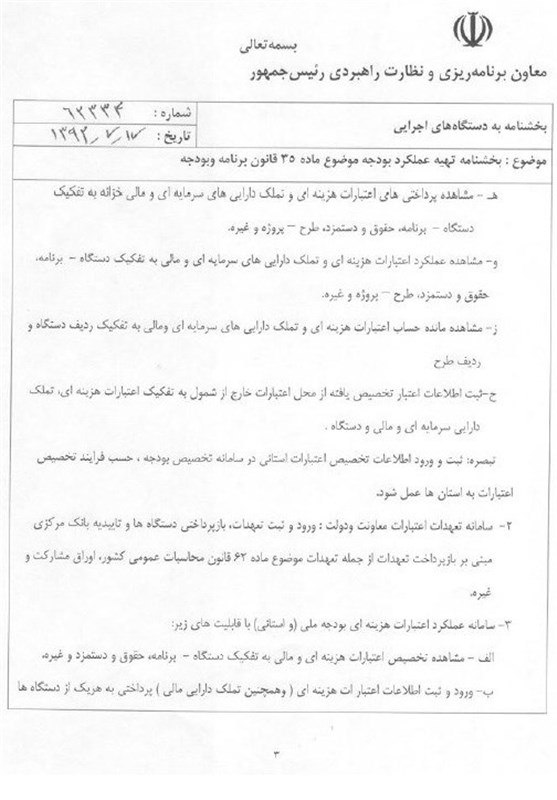 بسمه تعالی
معاون برنامه‌ریزی و نظارت راهبردی رئیس‌جمهور
بخشنامه به دستگاه‌های اجرایی
شماره : ۶۲۳۳۴
تاریخ : ۱۳۹۲/۷/۱۷
موضوع : بخشنامه تهیه عملکرد بودجه موضوع ماده ۳۵ قانون برنامه وبودجه
هـ - مشاهده پرداختی های اعتبارات هزینه ای و تملک دارایی های سرمایه ای و مالی خزانه به تفکیک
دستگاه – برنامه، حقوق و دستمزد، طرح – پروژه و غیره.
و- مشاهده عملکرد اعتبارات هزینه ای و تملک دارایی های سرمایه ای و مالی به تفکیک دستگاه – برنامه،
حقوق و دستمزد، طرح – پروژه و غیره.
ز- مشاهده مانده حساب اعتبارات هزینه ای و تملک دارایی های سرمایه ای ومالی به تفکیک ردیف دستگاه و
ردیف طرح
ح-ثبت اطلاعات اعتبار تخصیص یافته از محل اعتبارات خارج از شمول به تفکیک اعتبارات هزینه ای، تملک
دارایی سرمایه ای و مالی و دستگاه .
تبصره: ثبت و ورود اطلاعات تخصیص اعتبارات استانی در سامانه تخصیص بودجه ، حسب فرایند تخصیص
اعتبارات به استان ها عمل شود.
۲- سامانه تعهدات اعتبارات معاونت ودولت : ورود و ثبت تعهدات، بازپرداختی دستگاه ها و تاییدیه بانک مرکزی
مبنی بر بازپرداخت تعهدات از جمله تعهدات موضوع ماده ۶۲ قانون محاسبات عمومی کشور، اوراق مشارکت و
غیره.
۳- سامانه عملکرد اعتبارات هزینه ای بودجه ملی (و استانی) با قابلیت های زیر:
الف – مشاهده تخصیص اعتبارات هزینه ای و مالی به تفکیک دستگاه – برنامه، حقوق و دستمزد و غیره.
ب- ورود و ثبت اطلاعات اعتبار ات هزینه ای ( وهمچنین تملک دارایی مالی ) پرداختی به هریک از دستگاه ها
۳